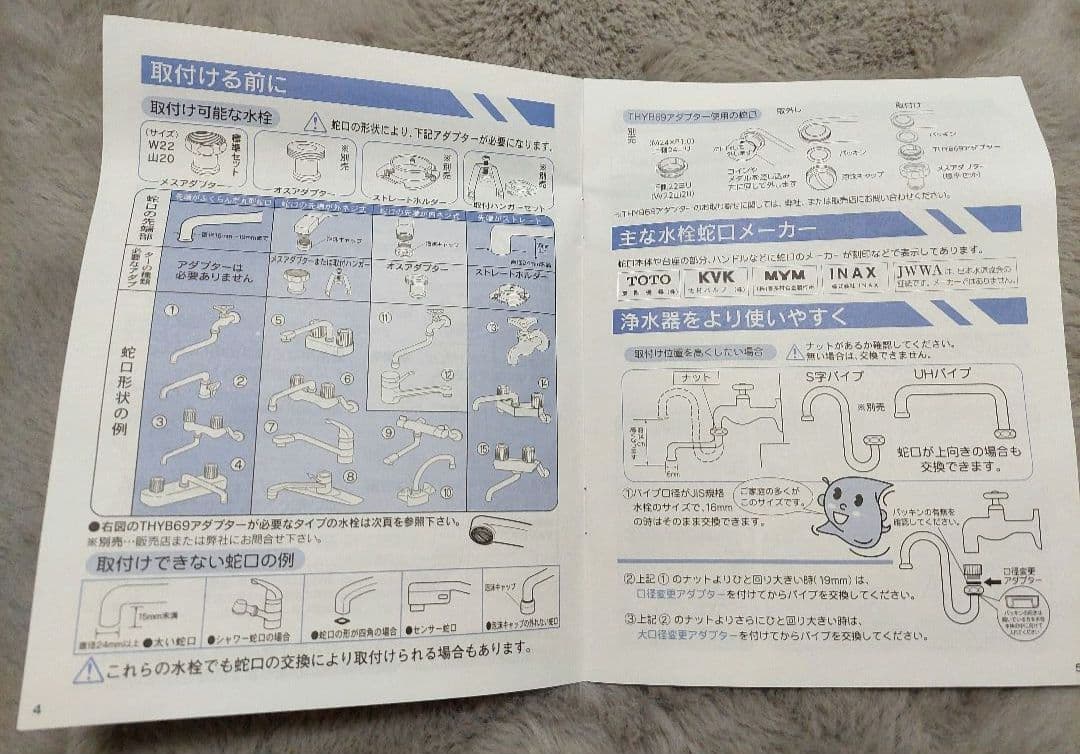 取付ける前に
取付け可能な水栓
蛇口の形状により、下記アダプターが必要になります。
(サイズ)
W22
山20
標準セット
メスアダプター
※別売
オスアダプター
※別売
ストレートホルダー
※別売
取付ハンガーセット
蛇口の先端部
蛇口の先端が外ネジ式
泡沫キャップ
泡沫キャップ
先端がストレート
アダプターは
必要ありません
メスアダプターまたは取付ハンガー
オスアダプター
ストレートホルダー
蛇口形状の例
①
②
③
④
⑤
⑥
⑦
⑧
⑪
⑫
⑨
⑩
⑭
⑮
●右図のTHYB69アダプターが必要なタイプの水栓は次頁を参照下さい。
※別売…販売店または弊社にお問合せ下さい。
取付けできない蛇口の例
15mm未満
直径24mm以上
●太い蛇口
●シャワー蛇口の場合
●蛇口の形が四角の場合
●センサー蛇口
泡沫キャップ
●泡沫キャップの外れない蛇口
これらの水栓でも蛇口の交換により取付けられる場合もあります。
4
THYB69アダプター使用の蛇口
取外し
取付け
別売
パッキン
泡沫キャップ
パッキン
THYB69アダプター
メスアダプター
(標準セット)
※THYB69アダプターのお取り寄せに関しては、弊社、または販売店にお問い合わせください。
主な水栓蛇口メーカー
蛇口本体や台座の部分、ハンドルなどに蛇口のメーカーが刻印などで表示してあります。
TOTO
東陶機器(株)
KVK
MYM
INAX
株式会社 INAX
JWWA は、日本水道協会の
記号です。メーカーではありません。
浄水器をより使いやすく
取付け位置を高くしたい場合
ナットがあるか確認してください。
無い場合は、交換できません。
ナット
S字パイプ
※別売
UHパイプ
蛇口が上向きの場合も
交換できます。
①パイプ口径がJIS規格
水栓のサイズで、16mm
の時はそのまま交換できます。
ご家庭の多くが
このサイズです。
パッキンの有無を
確認してください。
②上記①のナットよりひと回り大きい時(19mm)は、
口径変更アダプターを付けてからパイプを交換してください。
③上記②のナットよりさらにひと回り大きい時は、
大口径変更アダプターを付けてからパイプを交換してください。
口径変更
アダプター
5